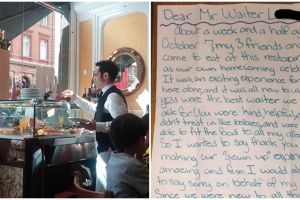 Dear Mr Waiter L
About a week and a half a
October 7, my 3 friends an
came to eat at this restaur
as our own homecoming celeb
It was an exciting experience
here alone, and it was all new to u
you were the best waiter we
ask for. You were kind, helpful
didn't treat us like babies, and were
able to fit the food to all my alle
So I wanted to say thank you
making our "grown up" experi
amazing and fun. I would als
to say sorry on behalf of my
Since we were new to all the